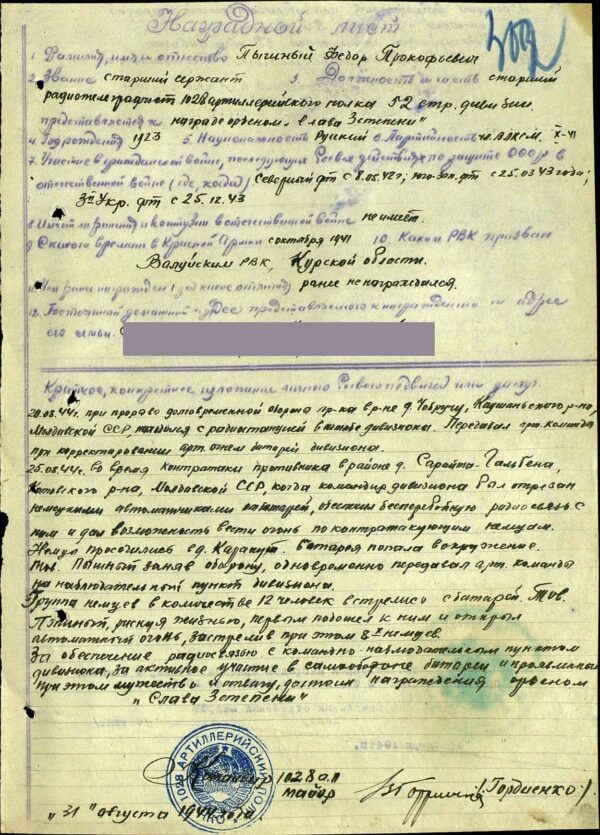 Наградной лист
1. Фамилия, имя и отчество Пышный Федор Прокофьевич
2. Звание старший сержант 3. Должность и часть старший
радиотелеграфист 1028 артиллерийского полка 52 стр. дивизии
представляется к награде орденом "Слава 3 степени"
4. Год рождения 1923 5. Национальность Русский 6. Партийность чл. ВЛКСМ. X-41
7. Участие в гражданской войне, последующих боевых действиях по защите СССР и
отечественной войне (где, когда) Северный фт с 8.05.42г; юго-зап. фт с 25.03.43 года;
3й Укр. фт с 25.12.43
8. Имеет ли ранения и контузии в отечественной войне не имеет.
9. С какого времени в Красной Армии с октября 1941 10. Каким РВК призван
Валуйским РВК, Курской области.
11. Чем ранее награжден (за какие отличия) ранее не награждался.
12. Постоянный домашний адрес представляемого к награждению и адрес
его семьи.
Краткое, конкретное изложение личного боевого подвига или заслуг.
20.08.44г. при прорыве долговременной обороны пр-ка в р-не д. Чобручу, Каушанского р-на,
Молдавской ССР, находился с радиостанцией в штабе дивизиона. Передавал арт. команды
при корректировании арт. огнем батарей дивизиона.
25.08.44г. во время контратаки противника в районе д. Сарайта-Гальбена,
Котовского р-на, Молдавской ССР, когда командир дивизиона был отрезан
немецкими автоматчиками от батарей, обеспечил бесперебойную радиосвязь с
ним и дал возможность вести огонь по контратакующим немцам.
Немцы просочились в д. Каракуй. Батарея попала в окружение.
Тов. Пышный заняв оборону, одновременно передавал арт. команды
на наблюдательный пункт дивизиона.
Группа немцев в количестве 12 человек встрелись с батареей. Тов.
Пышный, рискуя жизнью, первым подошел к ним и открыл
автоматный огонь, застрелив при этом 8 немцев.
За обеспечение радиосвязью с командно-наблюдательным пунктом
дивизиона, за активное участие в самообороне батареи и проявленное
при этом мужество и отвагу, достоин награждения орденом
"Слава 3 степени"
1028 АРТИЛЛЕРИЙСКИЙ ПОЛК
Командир 1028 а.п.
майор (Гордиенко)
"31" августа 1944 года